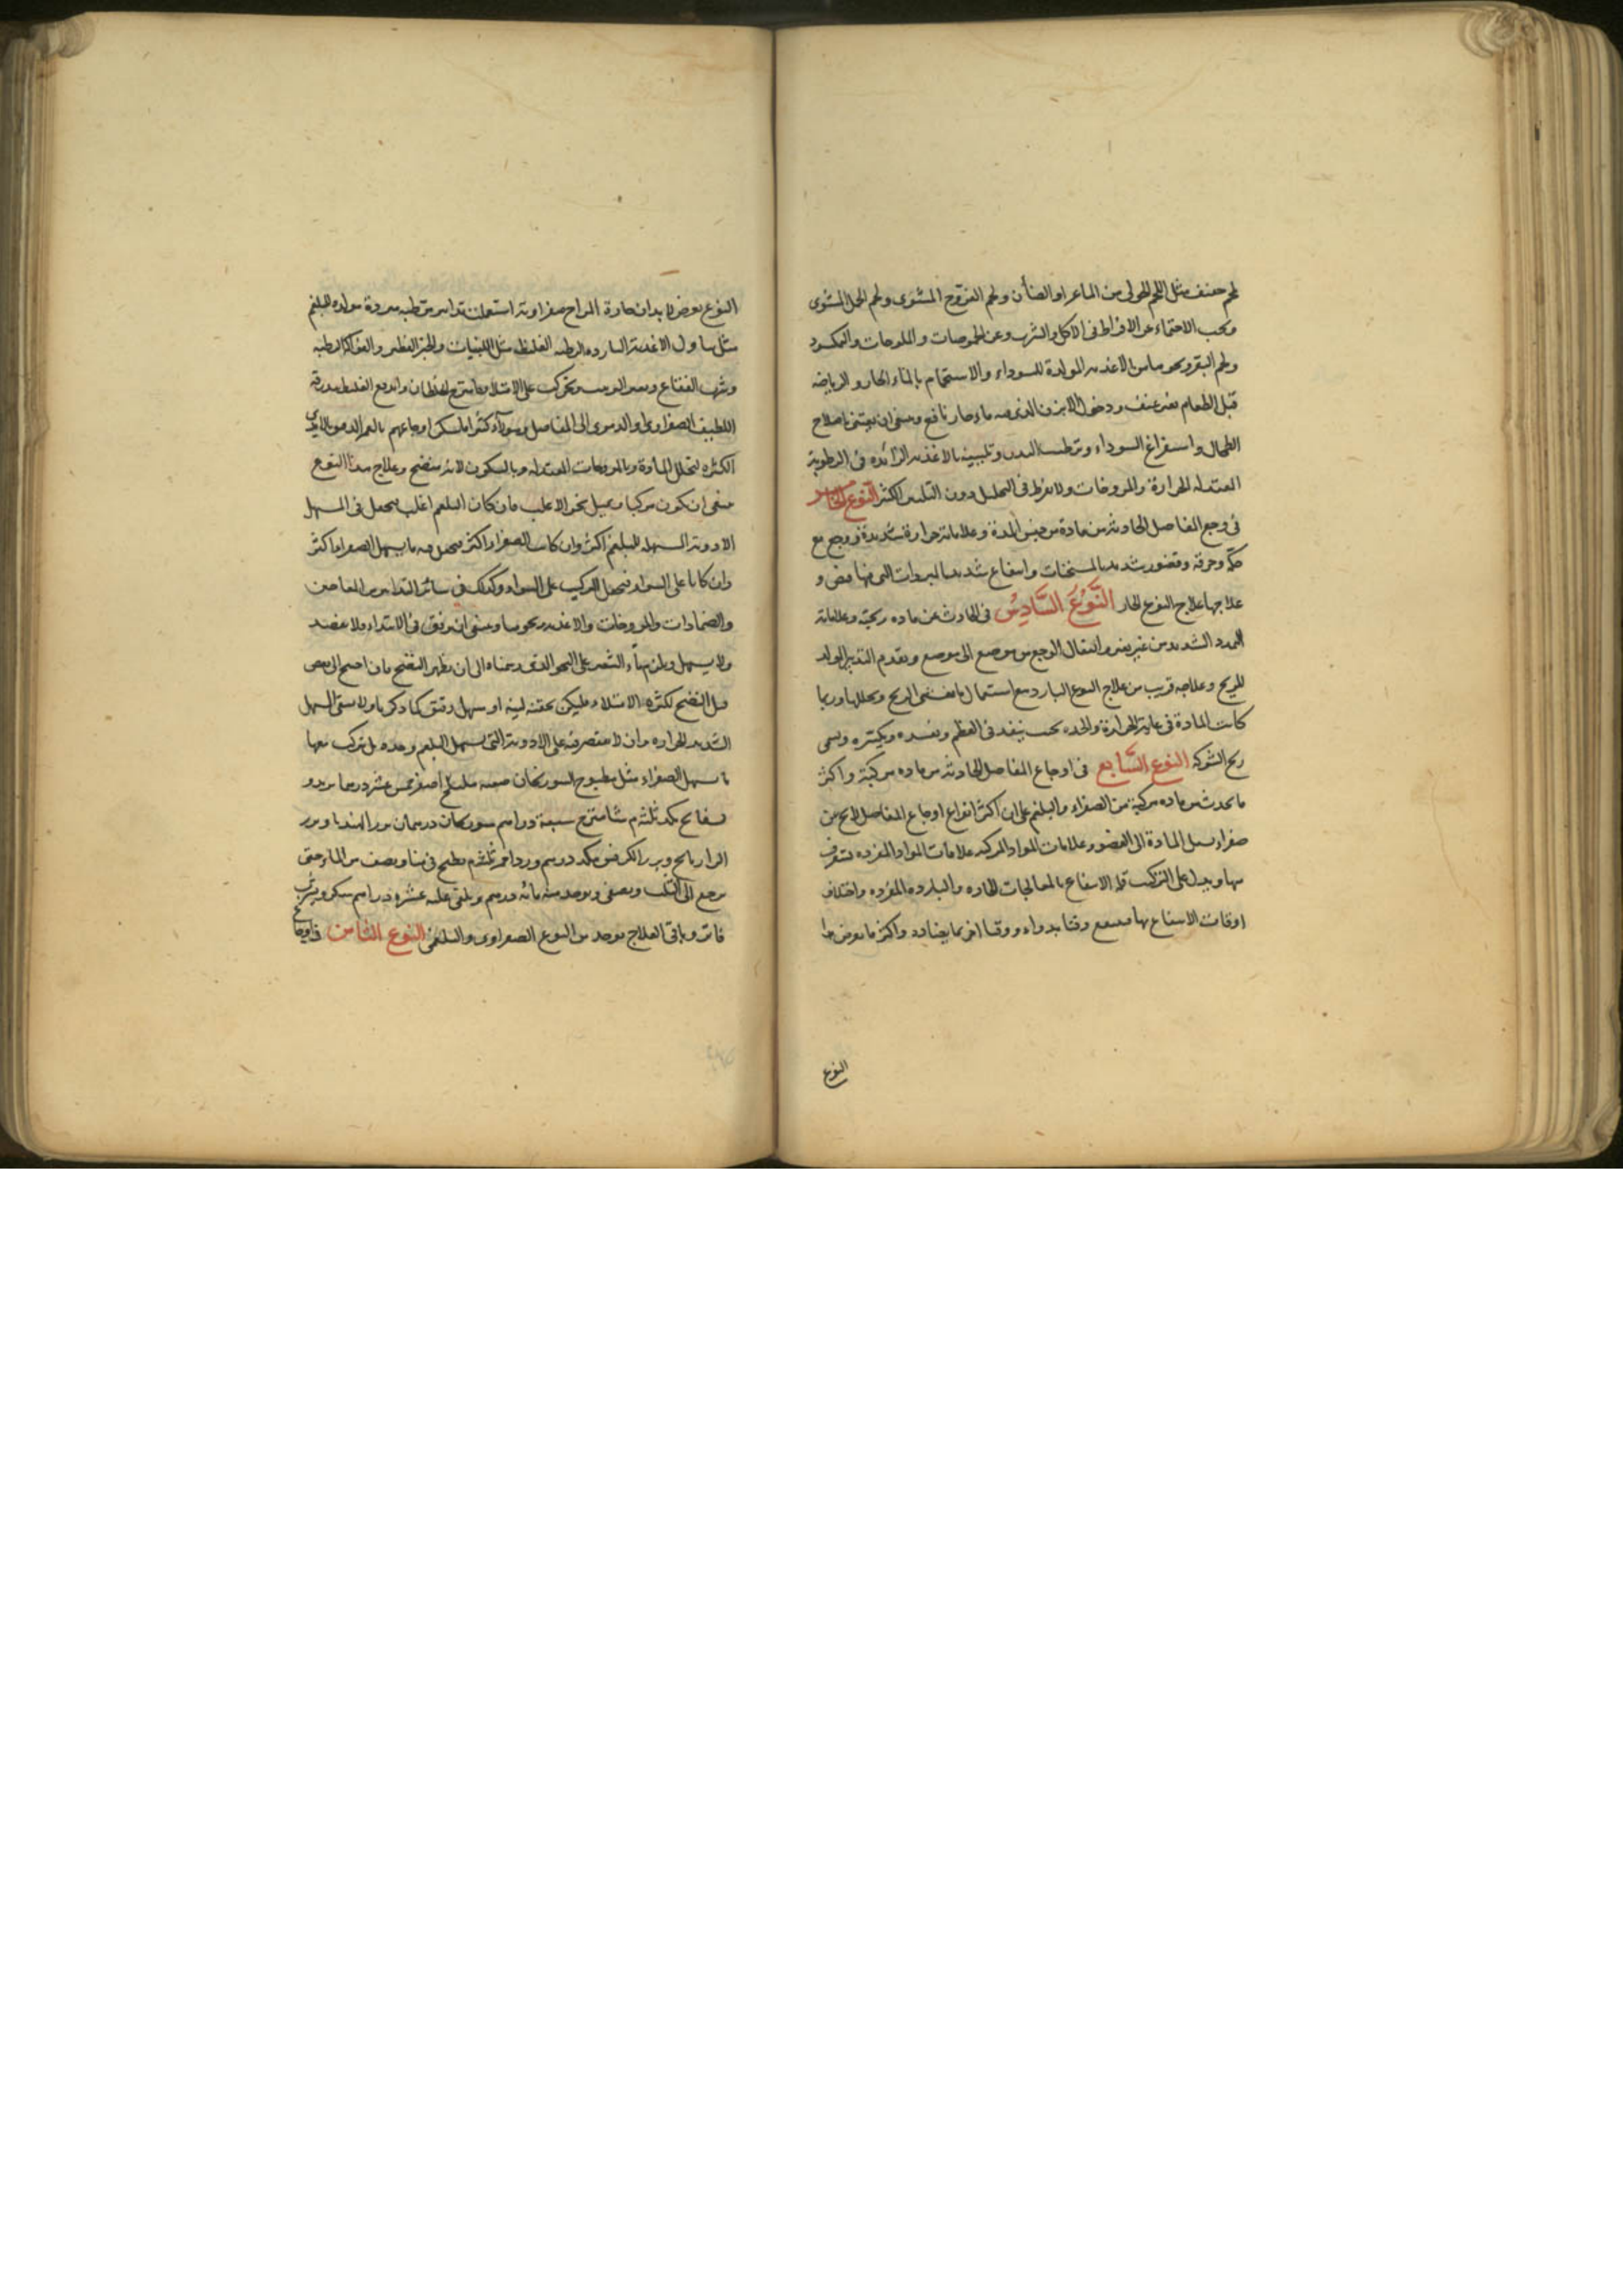 لحم خفيف مثل اللحم الحولى من الماعز او الضأن ولحم الفروج المشوى ولحم الحمل المشوى
ويجب الاحتماء عن الافراط فى الاكل والشرب وعن الحموضات والملوحات والنمكسود
ولحم البقر ونحوها من الاغذيه المولدة للسوداء والاستحمام بالماء الحار والرياضه
قبل الطعام بغير عنف ودخول الابزن الذى فيه ماء حار نافع وينبغى ان يعتنى باصلاح
الطحال واستفراغ السوداء وترطيب البدن وتليينه بالاغذيه الزائده فى الرطوبة
المعتدله الحرارة والمروخات ولا يفرط فى التحليل دون التليين الكثير النوع الخامس
فى وجع المفاصل الحادثه من مادة من جنس المدة وعلاماته حرارة شديدة ووجع مع
حكة وحرقة وتضرر شديد بالمسخنات وانتفاع شديد بالمبردات التى فيها قبض و
علاجها علاج النوع الحار النوع السادس فى الحادث عن ماده ريحية وعلاماته
التمدد الشديد من غير ثقل وانتقال الوجع من موضع الى موضع وتقدم التدبير المولد
للريح وعلاجه قريب من علاج النوع البارد مع استعمال ما يفشى الريح ويحللها وربما
كانت المادة فى غاية الحرارة والحده بحيث ينفد فى العظم ويفسده ويكسره ويسمى
ريح الشوكه النوع السابع فى اوجاع المفاصل الحادثه من ماده مركبة واكثر
ما يحدث من ماده مركبة من الصفراء والبلغم على ان اكثر انواع اوجاع المفاصل لا يخ من
صفراء يسيل المادة الى العضو وعلامات المواد المركبه علامات المواد المفرده لتعرف
منها ويدل على التركيب قلة الانتفاع بالمعالجات الحاره والبارده المفرده واختلاف
اوقات الانتفاع بها فينتفع وقتا بدواء ووقتا اخر بما يضادده واكثر ما يعرض هذا
النوع
النوع يعرض لابدان حارة المزاج صفراوية استعملت تدابير مرطبه مبردة مولده للبلغم
مثل تناول الاغذية البارده الرطبه الغليظه مثل اللبنيات والخبز الفطير والفواكه الرطبه
وشرب الفقاع وتحركت على الامتلاء فامتزج الخلطان واندفع الغليظ ببدرقة
اللطيف الصفراوى او الدموى الى المفاصل وهولاء كثيرا ما يسكن اوجاعهم بالغمز الدموى بالايدى
الكثيره لتحلل المادة وبالمروخات المعتدله وبالسكون لانه ينضج وعلاج هذا النوع
ينبغى ان يكون مركبا ويميل نحو الاغلب فان كان البلغم اغلب يجعل فى المسهل
الادوية المسهله للبلغم اكثر وان كانت الصفراء اكثر يجعل فيه ما يسهل الصفراء اكثر
وان كانا على السواء فيجعل التركيب على السواء وكذلك فى سائر التدابير من المعاجين
والضمادات والمروخات والاغذيه ونحوها وينبغى ان يرفق فى الابتداء ولا يفصد
ولا يسهل ويلزم ماء الشعير على النحو الذى رسمناه الى ان يظهر النضج فان احتيج الى نقص
قبل النضج لكثرة الامتلاء فليكن بحقنه لينه او مسهل رقيق كما ذكرنا ولا يسقى المسهل
الشديد الحراره وان لا يقتصر فيه على الادوية التى تسهل البلغم وحده بل يركب معها
ما يسهل الصفراء مثل مطبوخ السورنجان صفته هليلج اصفر خمس عشر درهما
بسفايج مكد ثلثه م شاهترج سبعة دراهم سورنجان درهمان بزر الهندبا وبزر
الرازيانج وبزر الكرفس مكد درهم ورد احمر ثلثه م يطبخ فى منا ونصف من الماء حتى
يرجع الى الثلث ويصفى ويوخذ منه مائه درهم ويلقى عليه عشرة دراهم سكر ويشرب
فاتر وباقى العلاج يوخذ من النوع الصفراوى والبلغمى النوع الثامن فى اوجاع